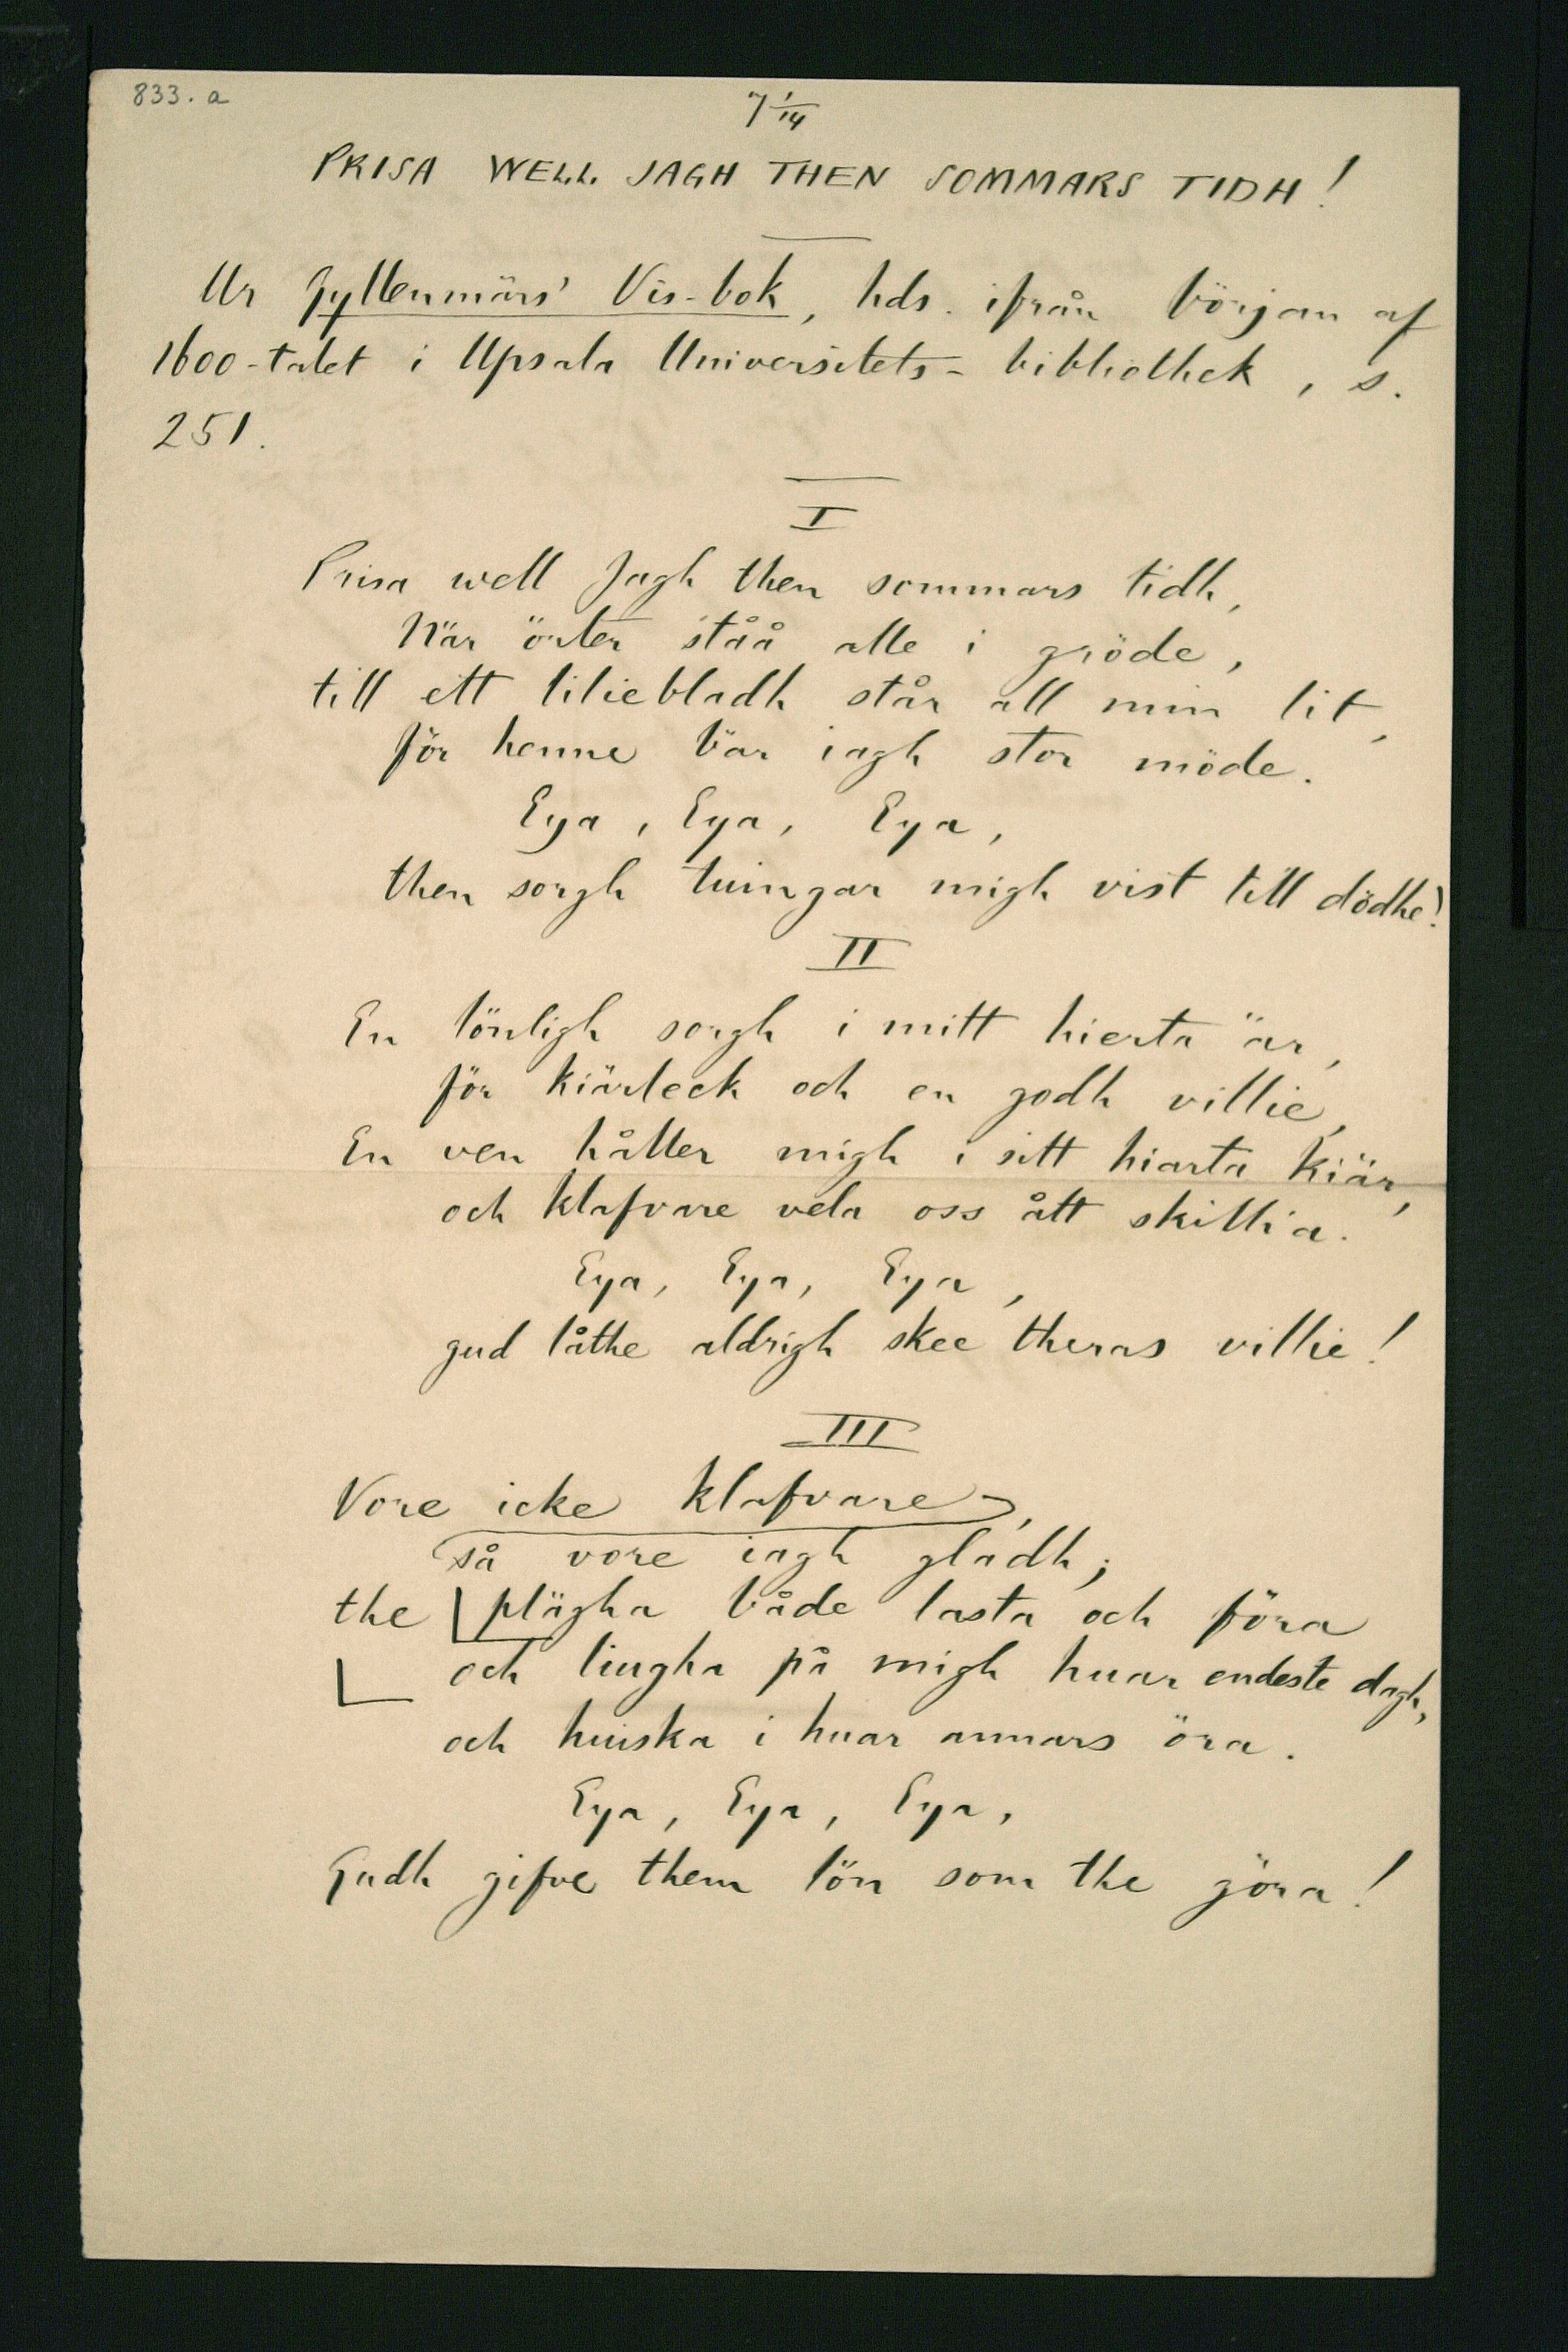 833. a
7 1/14
PRISA WELL JAGH THEN SOMMARS TIDH!
Ur Gyllenmärs' Vis-bok, hds. ifrån början af
1600-talet i Upsala Universitets-bibliothek, s.
251.
I
Prisa well Jagh then sommars tidh,
När örter ståå alle i gröde,
till ett liliebladh står all min lit,
för henne bär iagh stor möde.
Eya, Eya, Eya,
then sorgh tuingar migh vist till dödhe!
II
En lönligh sorgh i mitt hierta är,
för kiärleek och en godh villie,
En ven håller migh i sitt hiarta kiär,
och klafvare vela oss ått skillia.
Eya, Eya, Eya,
gud låthe aldrigh skee theras villie!
III
Vore icke klafvare,
så vore iagh gladh;
the plägha både lasta och föra
och liugha på migh huar endeste dagh,
och huiska i huar annars öra.
Eya, Eya, Eya,
Gudh gifve them lön som the göra!